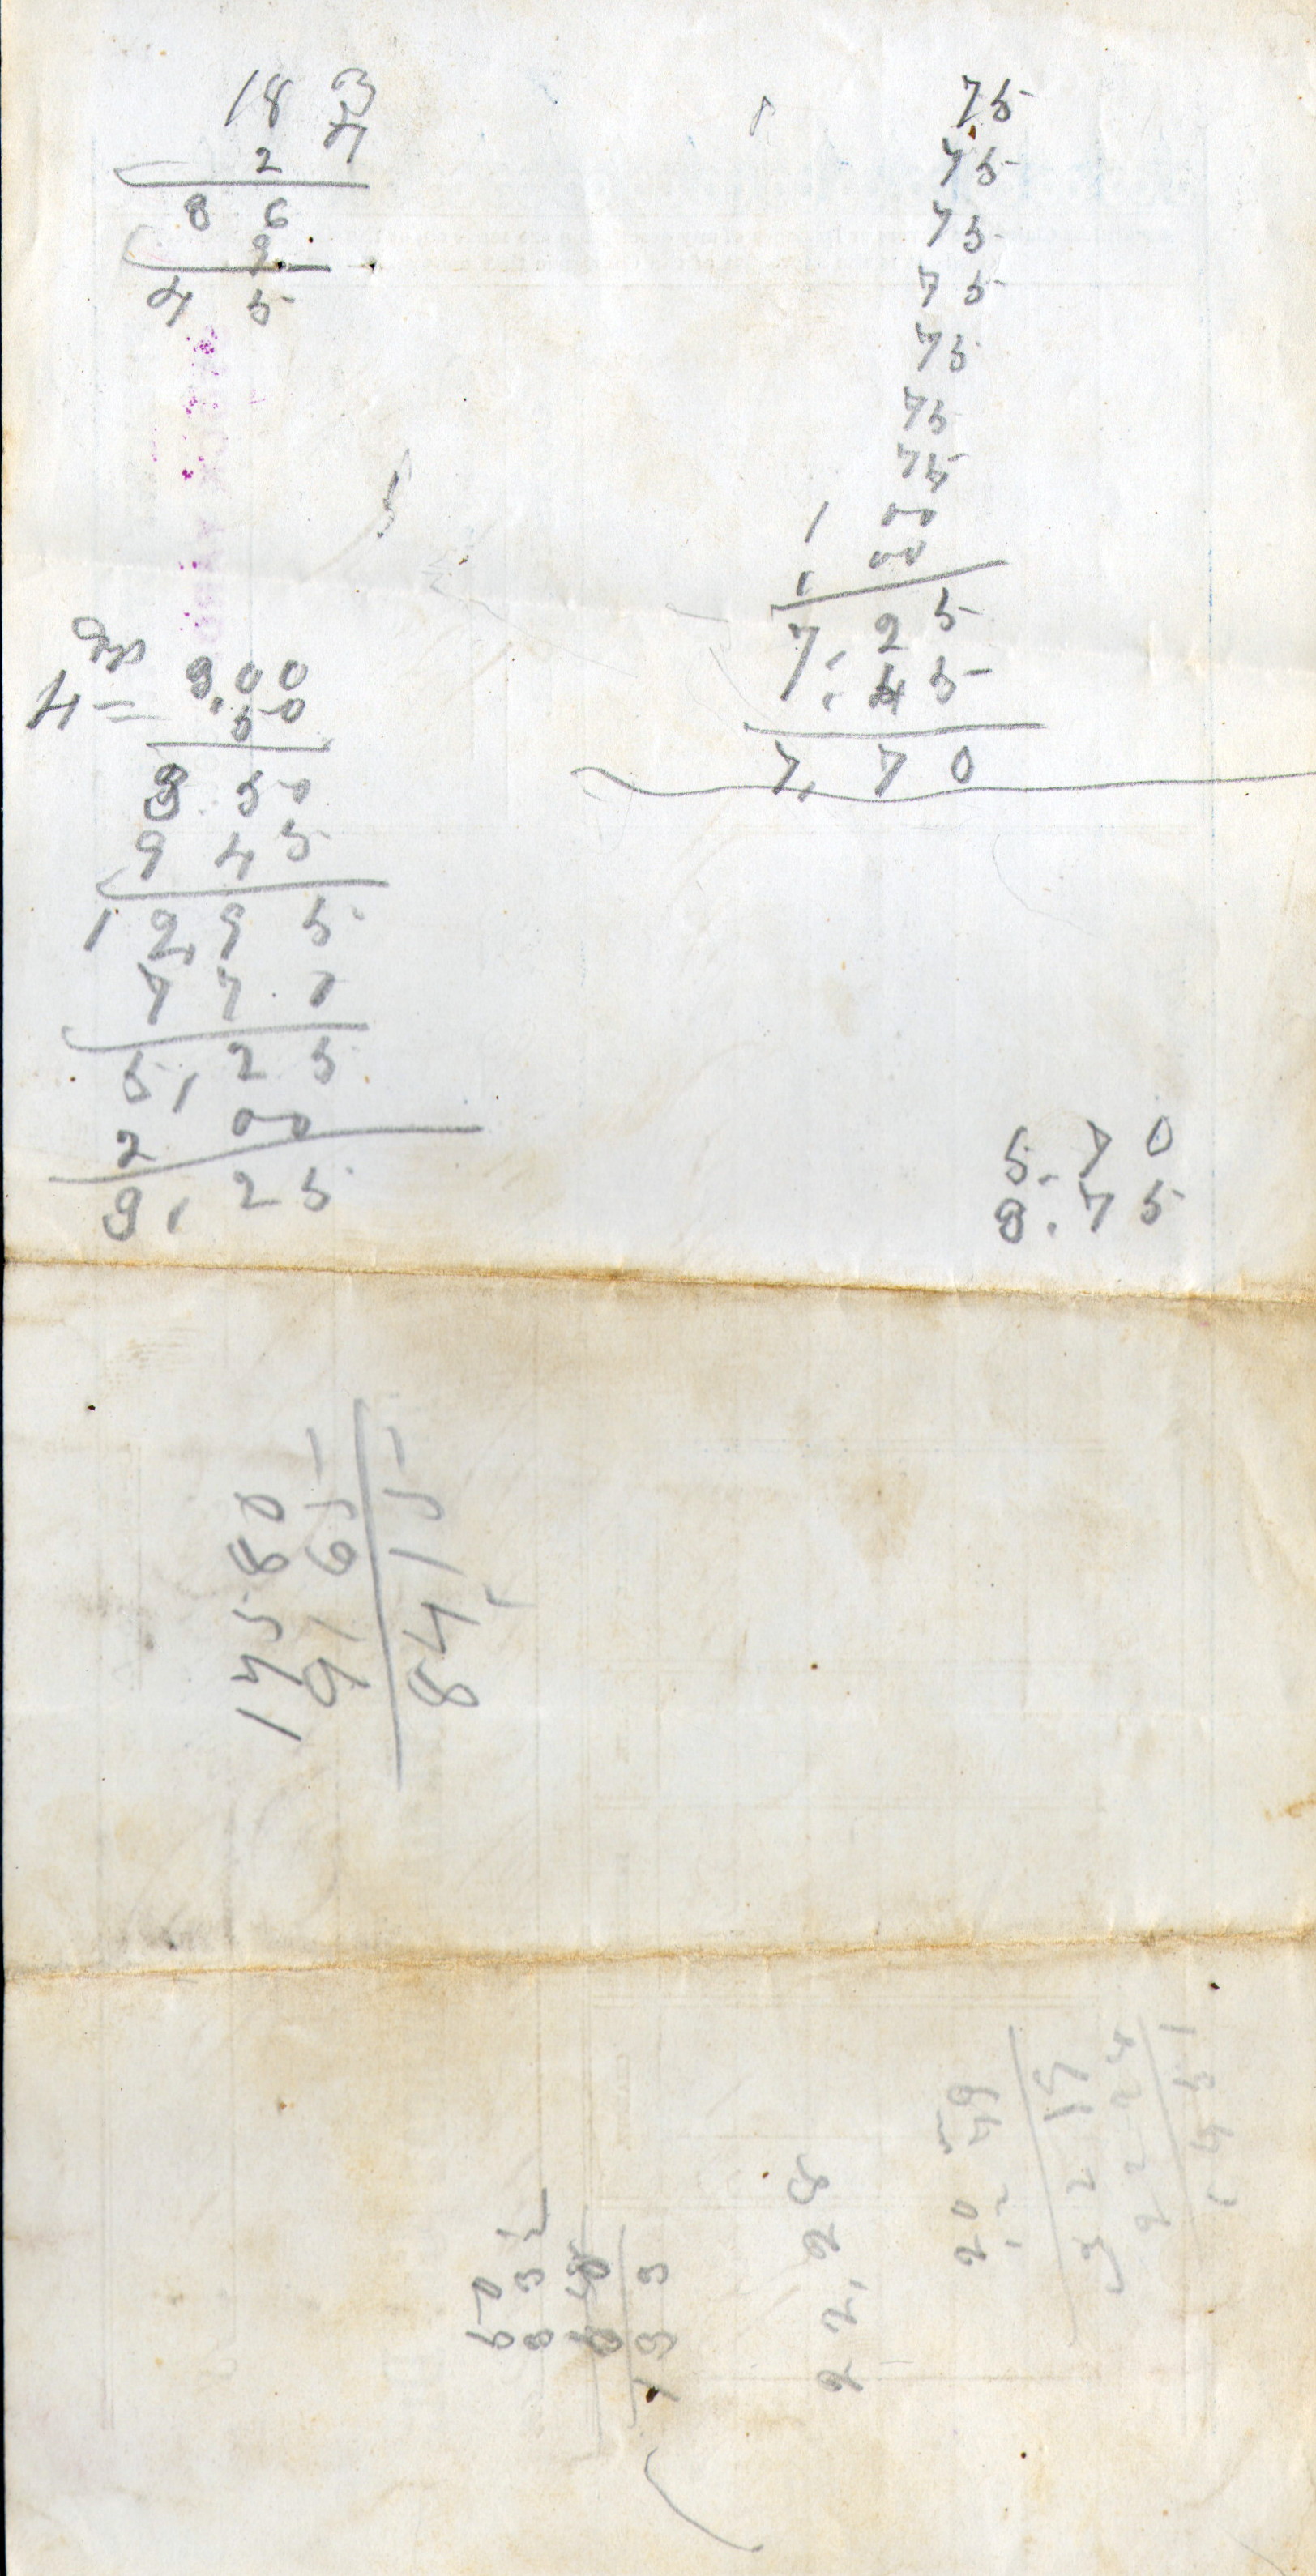 18 3
2 7
8 6
9
4 5
4 = 9.00
.50
8 50
9 45
1 2,95
7 7.7
5,25
2 00
9,25
75
75
75
75
75
75
75
1 00
1 00
7.25
.45
7.70
5.70
8.75
175 80
91 65
84 15
50
8 3
133
22.28
20 49